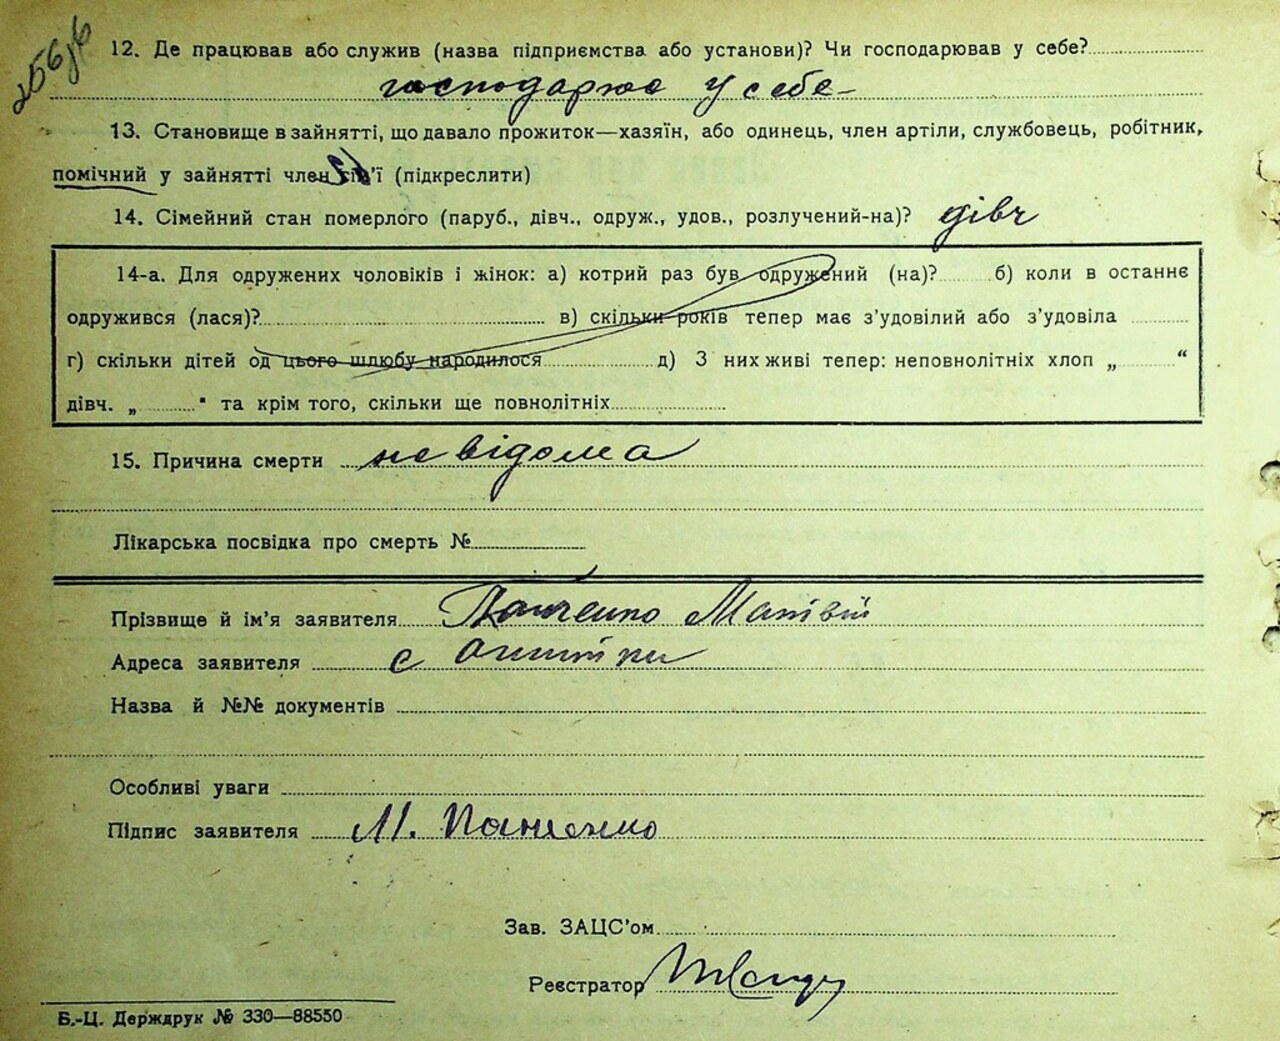 256зв
12. Де працював або служив (назва підприємства або установи)? Чи господарював у себе?
господарює у себе
13. Становище в зайнятті, що давало прожиток—хазяїн, або одинець, член артіли, службовець, робітник,
помічний у зайнятті член сім'ї (підкреслити)
14. Сімейний стан померлого (паруб., дівч., одруж., удов., розлучений-на)? дівч
14-а. Для одружених чоловіків і жінок: а) котрий раз був одружений (на)? б) коли в останнє
одружився (лася)? в) скільки років тепер має з'удовілий або з'удовіла
г) скільки дітей од цього шлюбу народилося д) З них живі тепер: неповнолітніх хлоп „ “
дівч. „ " та крім того, скільки ще повнолітніх
15. Причина смерти невідома
Лікарська посвідка про смерть №
Прізвище й ім'я заявителя Панченко Матвій
Адреса заявителя с
Назва й №№ документів
Особливі уваги
Підпис заявителя М. Панченко
Зав. ЗАЦС'ом
Реєстратор
Б.-Ц. Держдрук № 330—88550